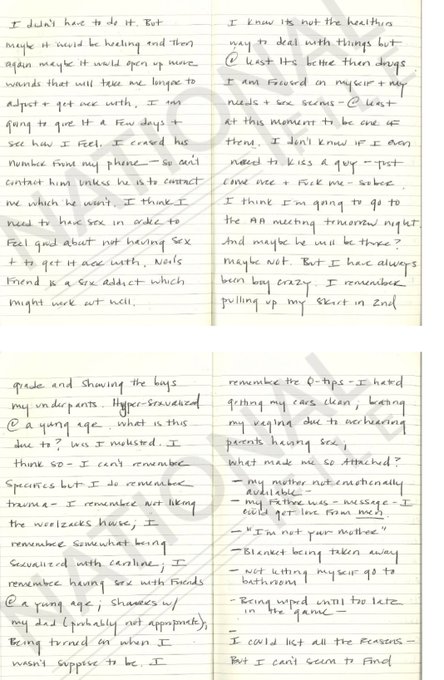 I didn't have to do it. But
maybe it would be healing and then
again maybe it would open up more
wounds that will take me longer to
adjust + get ack with. I am
going to give it a few days +
see how I feel. I erased his
number from my phone — so can't
contact him unless he is to contact
me which he won't. I think I
need to have sex in order to
feel good about not having sex
+ to get it ack with.
Friend is a sex addict which
might work out well.
I know its not the healthiest
way to deal with things but
@ least its better than drugs
I am focused on myself + my
needs + sex seems - @ least
at this moment to be one of
them. I don't know if I even
need to kiss a guy - just
come over + fuck me - sober.
I think I'm going to go to
the AA meeting tomorrow night
And maybe he will be there?
maybe not. But I have always
been boy crazy. I remember
pulling up my skirt in 2nd
grade and showing the boys
my underpants. Hyper-sexualized
@ a young age. what is this
due to? Was I molested. I
think so - I can't remember
specifics but I do remember
trauma - I remember not liking
the woolzacks house; I
remember somewhat being
sexualized with caroline; I
remember having sex with friends
@ a young age; showers w/
my dad (probably not appropriate);
Being turned on when I
wasn't suppose to be. I
remember the Q-tips - I hated
getting my ears clean, beating
my vagina due to overhearing
parents having sex;
what made me so attached?
- my mother not emotionally
available -
- my Father was - message - I
could get love from men.
- "I'm not your mother"
- Blanket being taken away
- not letting myself go to
bathroom
- Being wiped until too late
in the game -
-
I could list all the reasons -
But I can't seem to find
NATIONAL FILE
NATIONAL FILE